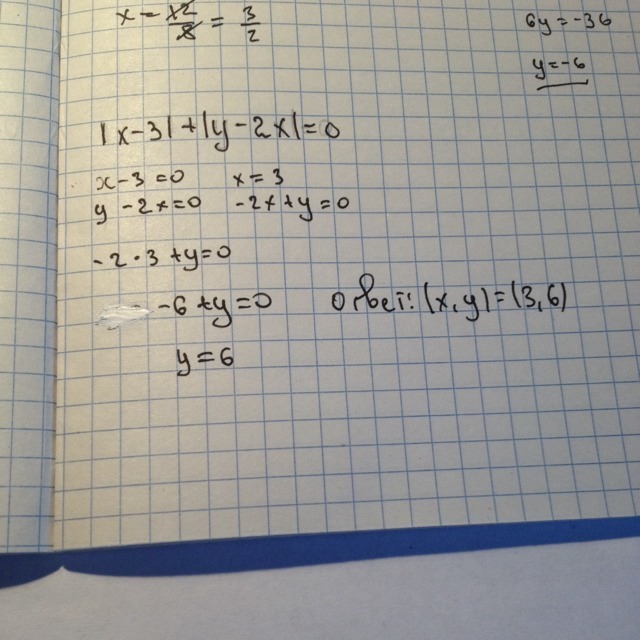 x - x2/8 = 3/2
6y = -36
y = -6
|x-3|+|y-2x|=0
x-3=0 x=3
y-2x=0 -2x+y=0
-2·3+y=0
-6+y=0 ответ: (x,y)=(3,6)
y=6